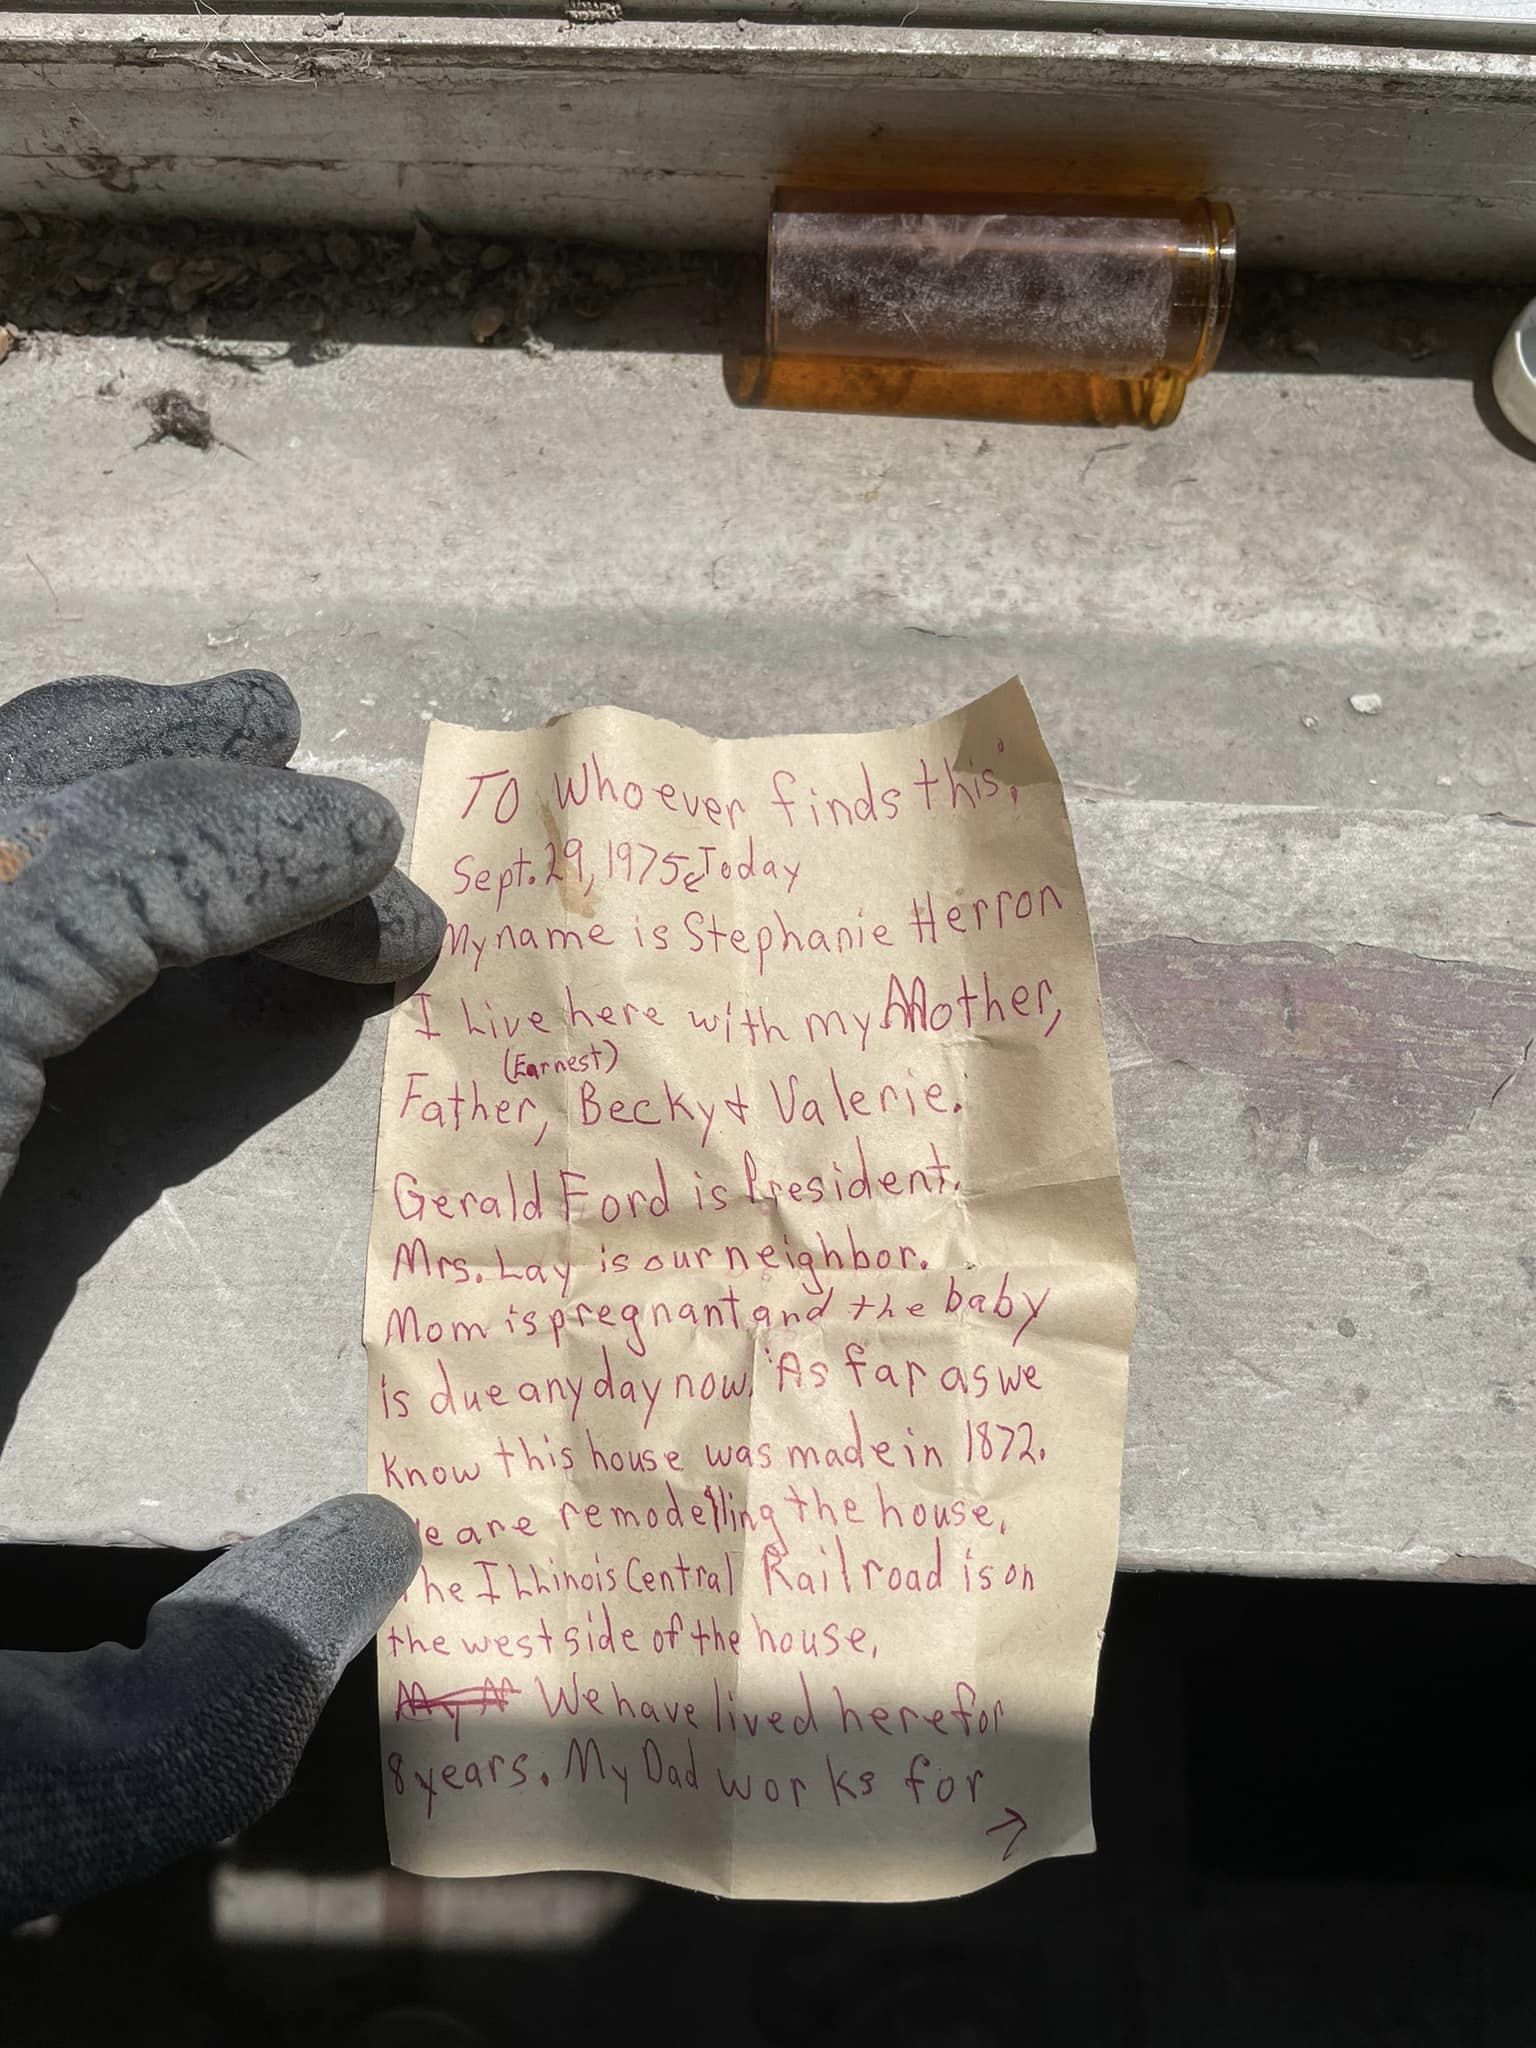 To whoever finds this,
Sept. 29, 1975 Today
My name is Stephanie Herron
I Live here with my Mother,
(Earnest)
Father, Becky & Valerie.
Gerald Ford is President.
Mrs. Lay is our neighbor.
Mom is pregnant and the baby
is due any day now. As far as we
know this house was made in 1872.
We are remodelling the house.
The Illinois Central Railroad is on
the west side of the house.
My M We have lived here for
8 years. My Dad works for
→